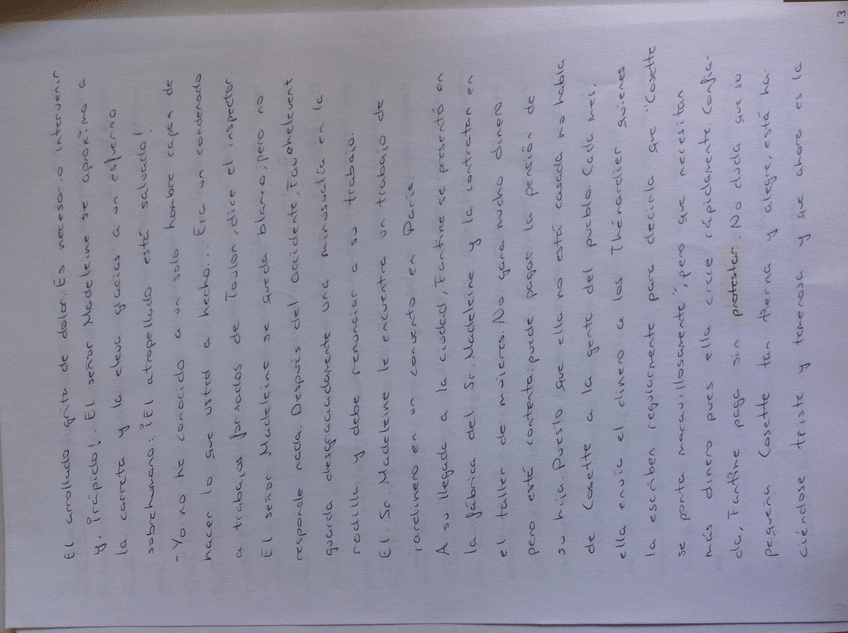 El arrollado grita de dolor. Es necesario intervenir
y, ¡rápido! El señor Madeleine se aproxima a
la carreta y la eleva gracias a un esfuerzo
sobrehumano: ¡El atropellado está salvado!
- Yo no he conocido a un solo hombre capaz de
hacer lo que usted a hecho... Era un condenado
a trabajos forzados de Toulon, dice el inspector.
El señor Madeleine se queda blanco, pero no
responde nada. Después del accidente, Fauchelevent
guarda desgraciadamente una minusvalía en la
rodilla y debe renunciar a su trabajo.
El Sr. Madeleine le encuentra un trabajo de
jardinero en un convento en París.
A su llegada a la ciudad, Fantine se presentó en
la fábrica del Sr. Madeleine y la contratan en
el taller de mujeres. No gana mucho dinero
pero está contenta: puede pagar la pensión de
su hija. Puesto que ella no está casada no habla
de Cosette a la gente del pueblo. Cada mes,
ella envía el dinero a los Thénardier quienes
la escriben regularmente para decirla que "Cosette
se porta maravillosamente", pero que necesitan
más dinero pues ella crece rápidamente. Confia-
da, Fantine paga sin protestar. No duda que su
pequeña Cosette tan tierna y alegre, está ha-
ciéndose triste y temerosa y que ahora es la
13